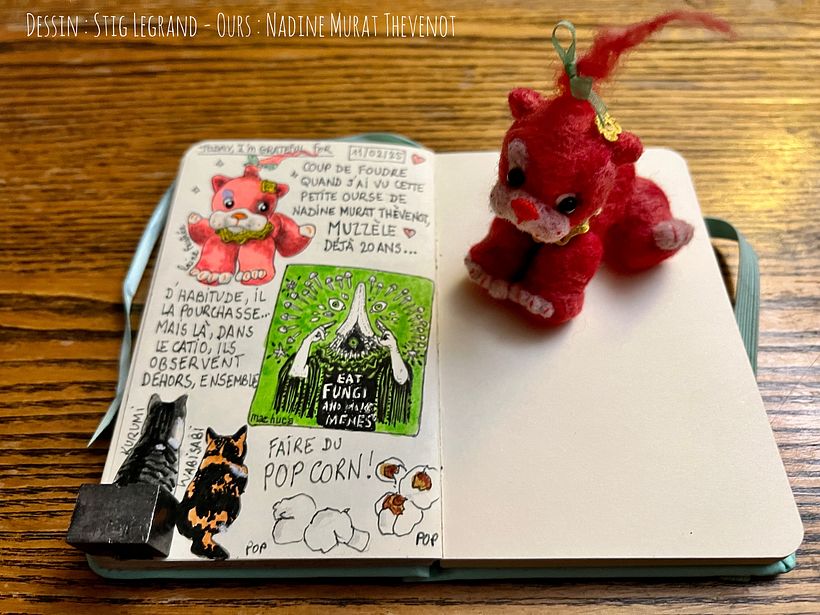 Dessin : Stig Legrand - Ours : Nadine Murat Thevenot
TODAY, I'm GRATEFUL FOR
11/02/25
COUP DE FOUDRE
QUAND J'AI VU CETTE
PETITE OURSE DE
NADINE MURAT THÈVENOT,
MUZZÈLE
DÉJÀ 20 ANS...
D'HABITUDE, IL
LA POURCHASSE...
MAIS LÀ, DANS
LE CATIO, ILS
OBSERVENT
DEHORS, ENSEMBLE
EAT
FUNGI
AND MAKE
MEMES
machuca
KURUMI
WABISABI
FAIRE DU
POP CORN!
POP
POP